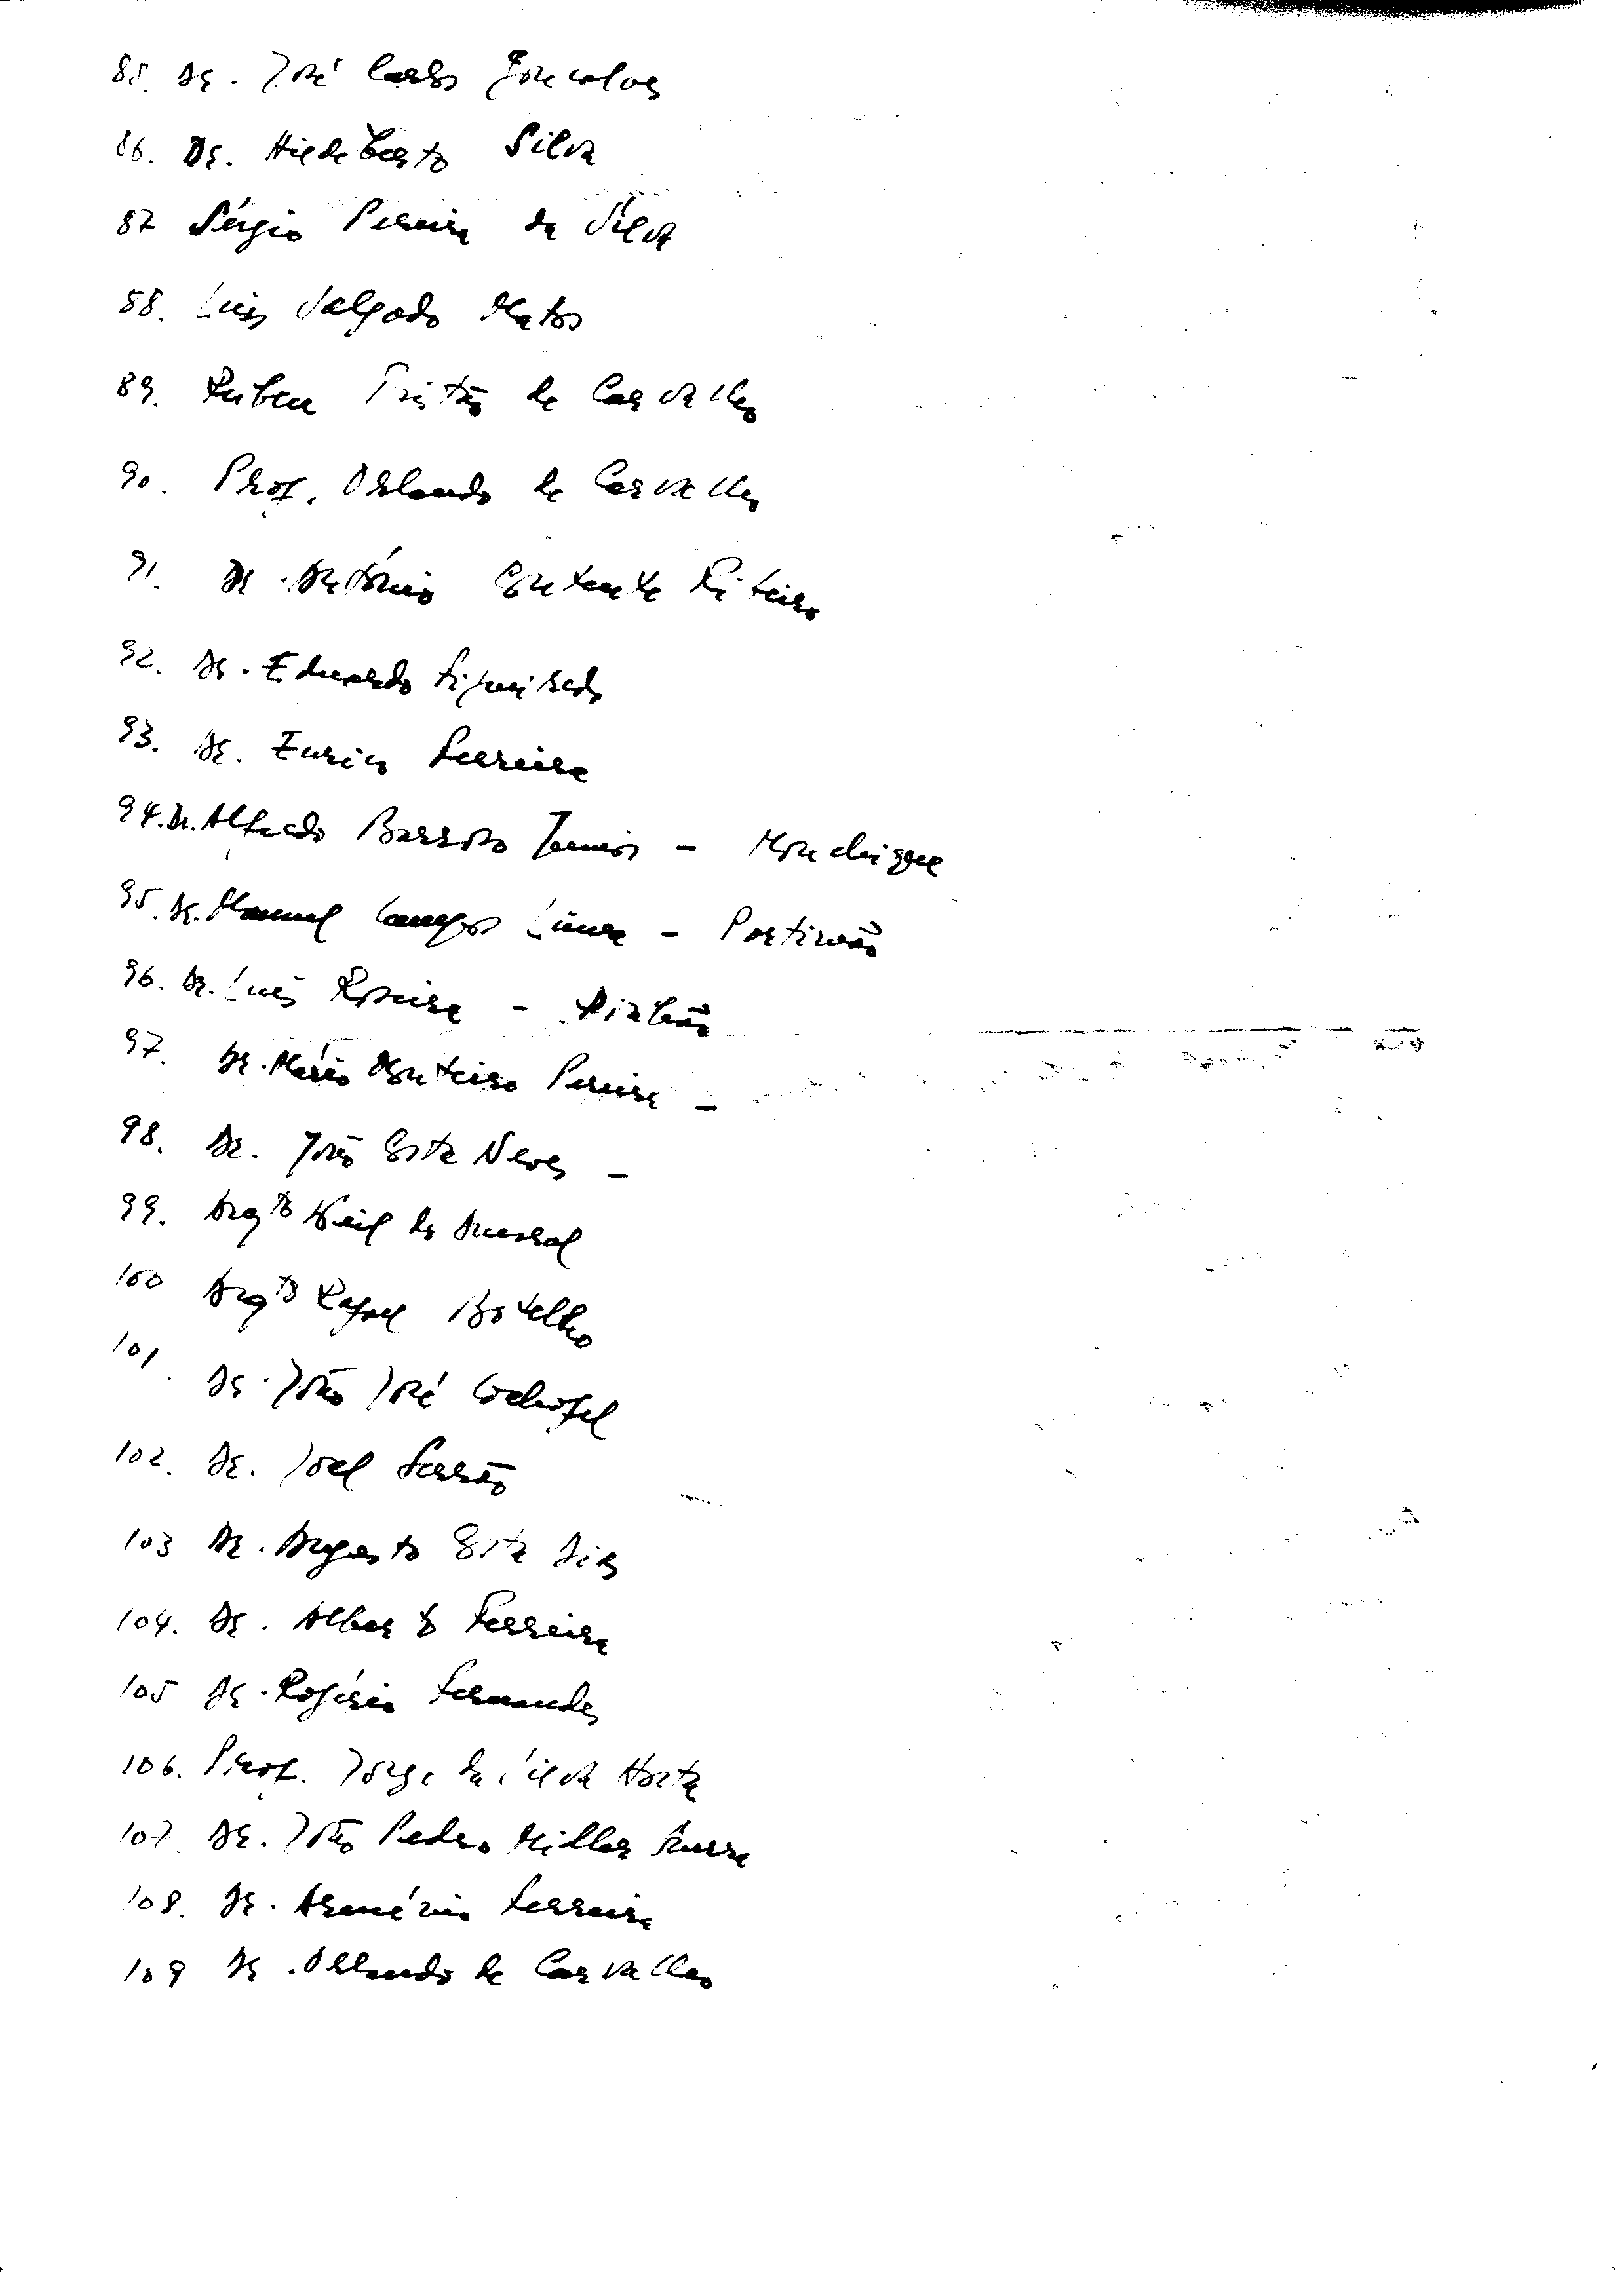 85. Dr. José Carlos Gonçalves
86. Dr. Hildeberto Silva
87 Sérgio Pereira da Silva
88. Luís Salgado Matos
89. Ruben Tristão de Carvalho
90. Prof. Orlando de Carvalho
91. Dr. António Contente Ribeiro
92. Dr. Eduardo Figueiredo
93. Dr. Eurico Ferreira
94. Dr. Alfredo Barroso Junior – Monchique
95. Dr. Manuel Campos Lima – Portimão
96. Dr. Luís Roseira – Pinhão
97. Dr. Mário Monteiro Pereira –
98. Dr. João Costa Neves –
99. Arqto Keil do Amaral
100 Arqto Rafael Botelho
101. Dr. João José Cochofel
102. Dr. Joel Serrão
103 Dr. Augusto Costa Dias
104. Dr. Alberto Ferreira
105 Dr. Rogério Fernandes
106. Prof. Jorge da Silva Horta
107. Dr. João Pedro Miller Guerra
108. Dr. Arménio Ferreira
109 Dr. Orlando de Carvalho